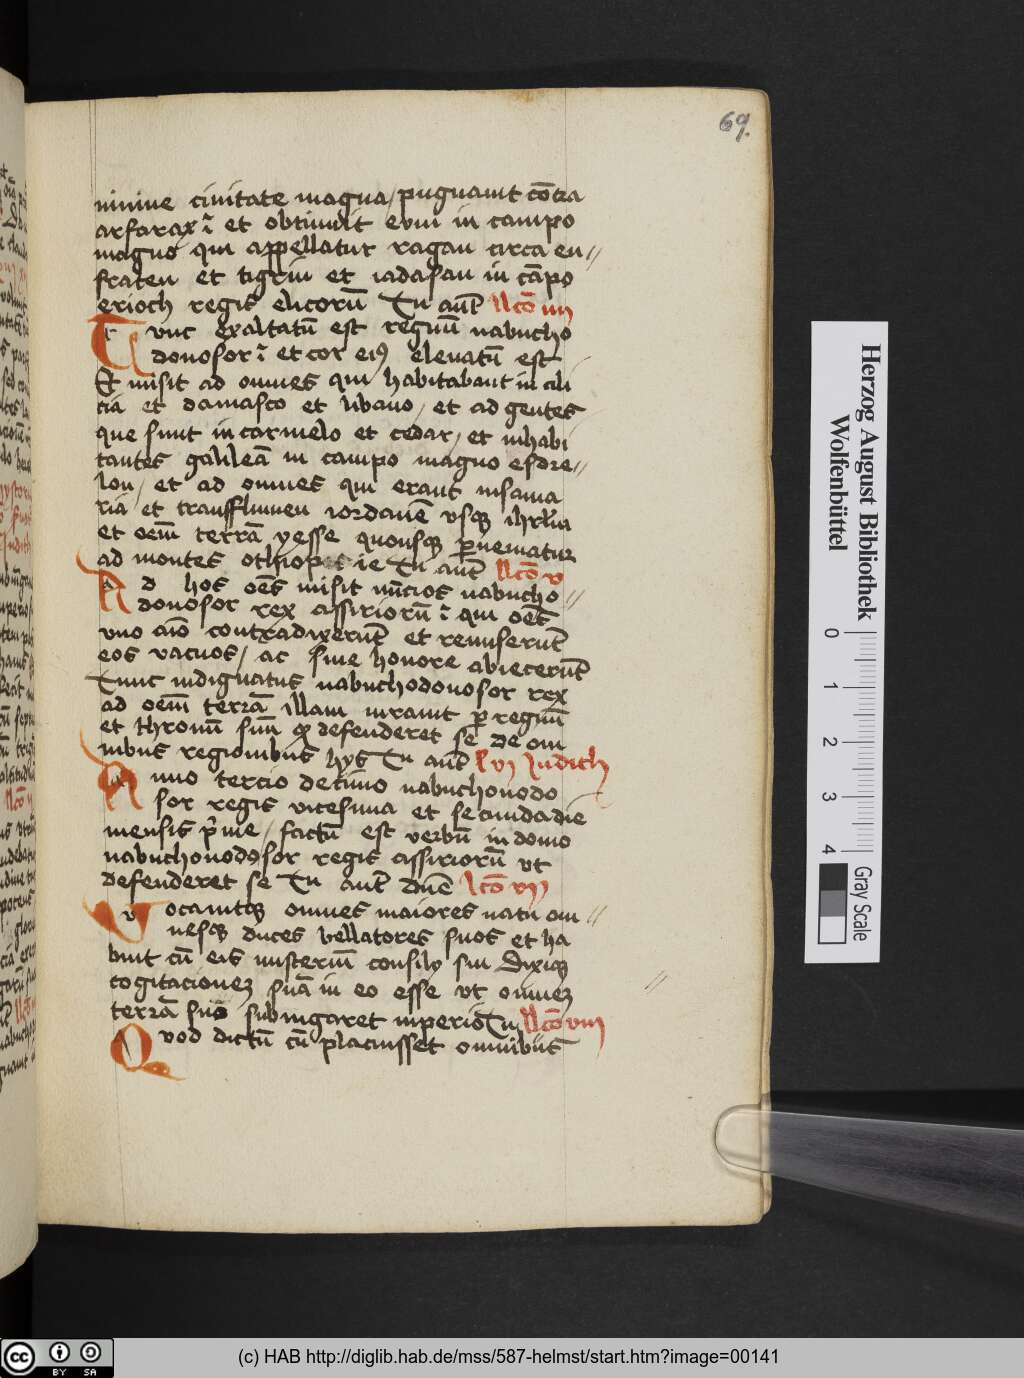 69.
ninive civitate magna / pugnavit cōtra
arfaxax ī et obtinuit eum in campo
magno qui appellatur ragau circa eu//
fraten et tigrin et iadasan in cāpo
erioch regis elicorū Tu aūt llcō iiij
Tunc exaltatū est regnū nabucho
donosor ī et cor eiꝰ elevatū est
Et misit ad omnes qui habitabant in cili
cia et damasco et libano / et ad gentes
que sunt in carmelo et cedar / et inhabi
tantes galileā in campo magno esdre//
lon / et ad omnes qui erant in sama
ria / et transflumen iordanē usqꝫ ihrlm̄
et oēm terrā yesse quousqꝫ ꝑveniatur
ad montes ethiopie Tu aūt llcō v
Ad hos oēs misit nūcios nabucho//
donosor rex assiriorū ī qui oēs
uno aīo contradixerūt et remiserūt
eos vacuos / ac sine honore abiecerūt
Tunc indignatus nabuchodonosor rex
ad oēm terrā illam iuravit ꝑ regnū
et thronū suū ꝙ defenderet se de om
nibus regionibus hijs Tu aūt Judith
Anno tercio decimo nabuchonodo
sor regis vicesima et secunda die
mensis p̄me / factū est verbū in domo
nabuchonodosor regis assiriorū ut
defenderet se Tu aūt dn̄e lcō vij
Vocavitqꝫ omnes maiores natu om//
nesqꝫ duces bellatores suos et ha
buit cū eis misteriū consilij sui Dixitqꝫ
cogitacionem suā in eo esse ut omnem
terrā suo subiugaret imperio Tu llcō viij
Quod dictū cū placuisset omnibus
Herzog August Bibliothek
Wolfenbüttel
0 1 2 3 4
Gray Scale
(c) HAB http://diglib.hab.de/mss/587-helmst/start.htm?image=00141
cc BY SA